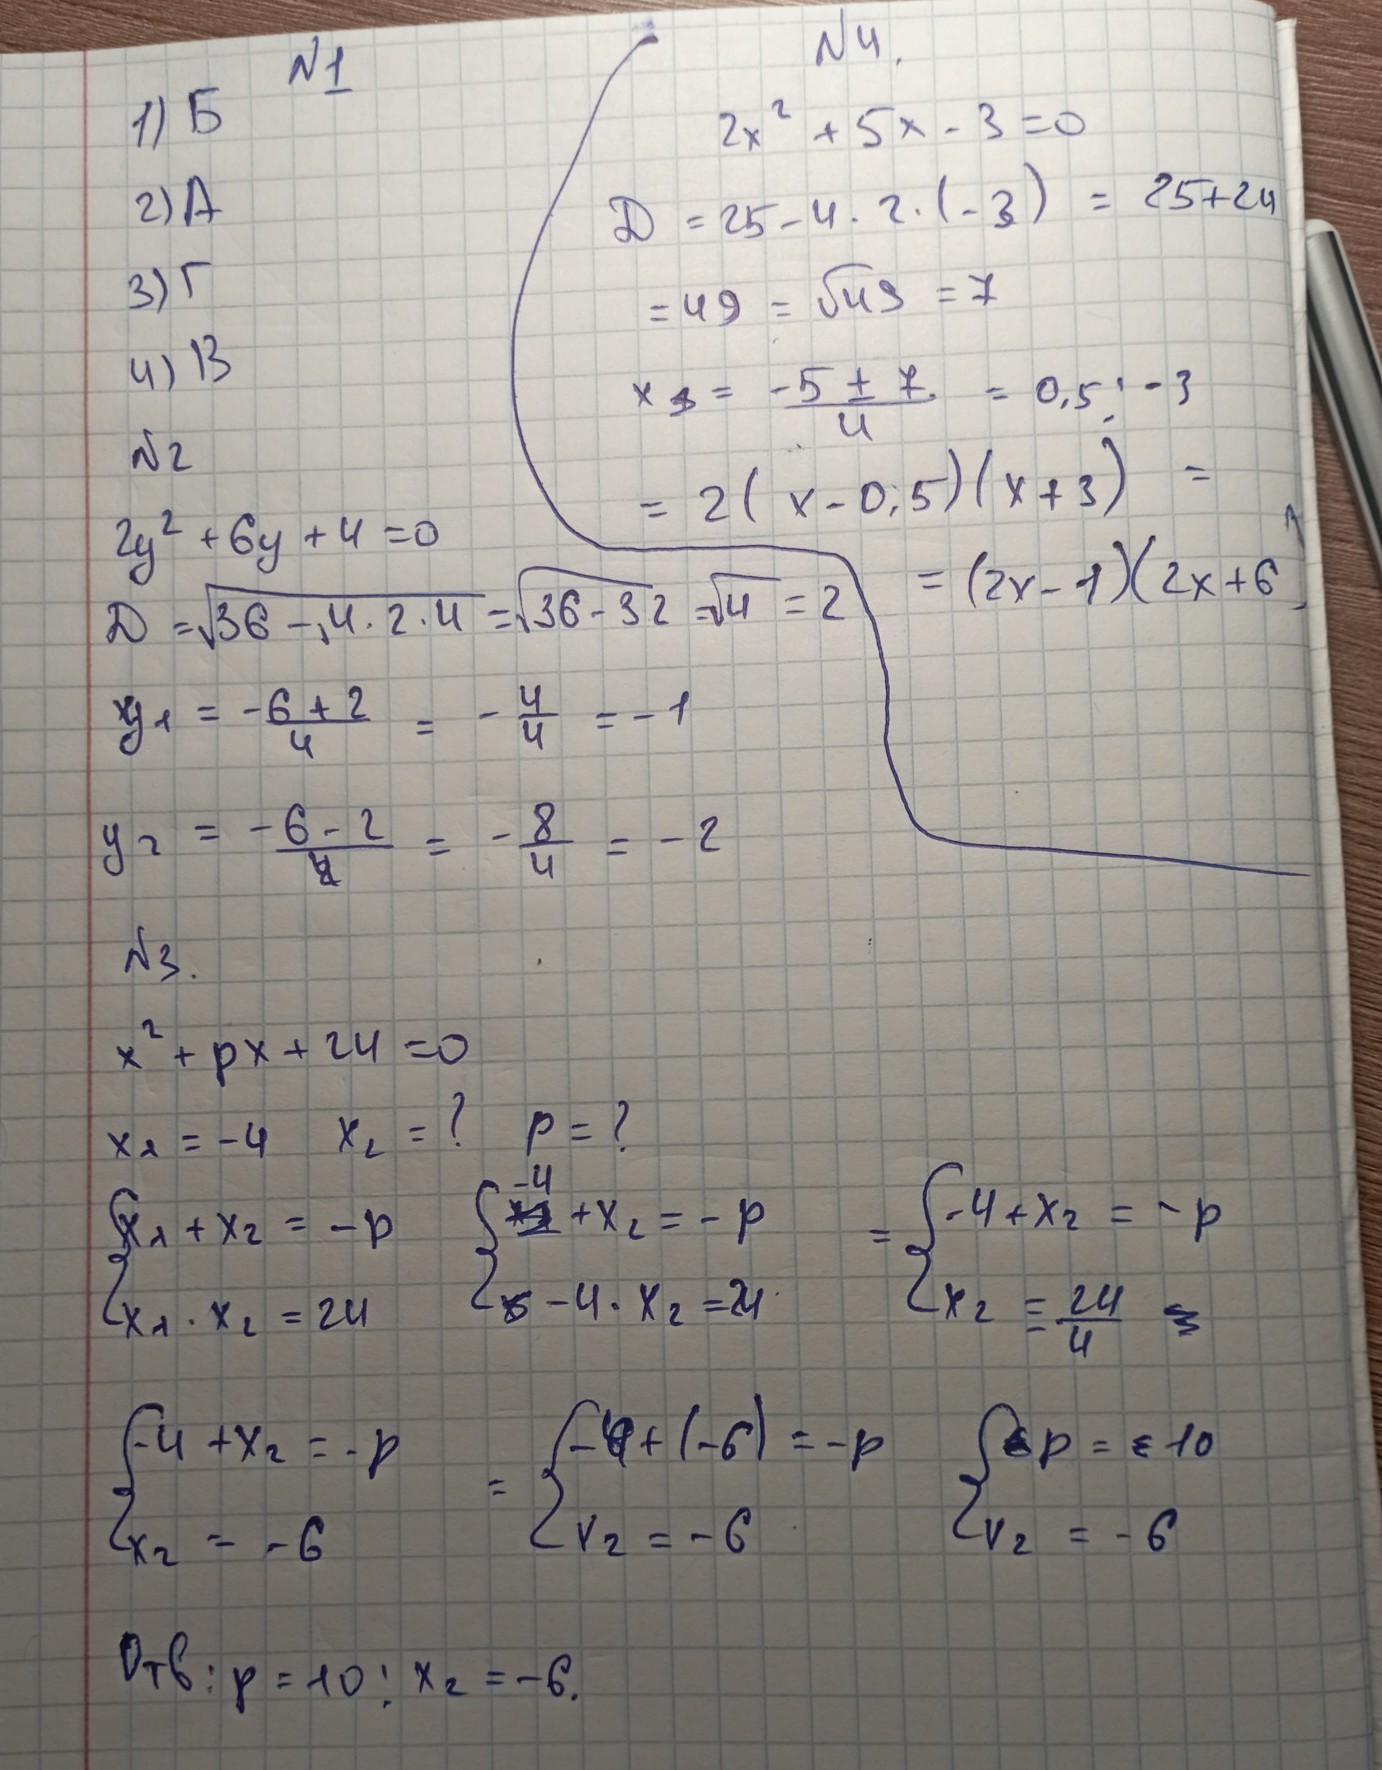 №1
1) Б
2) А
3) Г
4) В
№2
2y² + 6y + 4 = 0
D = √36 - 4 · 2 · 4 = √36 - 32 = √4 = 2
y₁ = -6 + 2 / 4 = - 4/4 = - 1
y₂ = -6 - 2 / 4 = - 8/4 = - 2
№3.
x² + px + 24 = 0
x₁ = -4 x₂ = ? p = ?
{ x₁ + x₂ = -p { -4 + x₂ = -p = { -4 + x₂ = -p
x₁ · x₂ = 24 -4 · x₂ = 24 x₂ = 24/4
{ -4 + x₂ = -p = { -4 + (-6) = -p { p = 10
x₂ = -6 x₂ = -6 x₂ = -6
Отв: p = 10; x₂ = -6.
№4.
2x² + 5x - 3 = 0
D = 25 - 4 · 2 · (-3) = 25 + 24
= 49 = √49 = 7
x = -5 ± 7 / 4 = 0,5; -3
= 2(x - 0,5)(x + 3) =
= (2x - 1)(2x + 6)